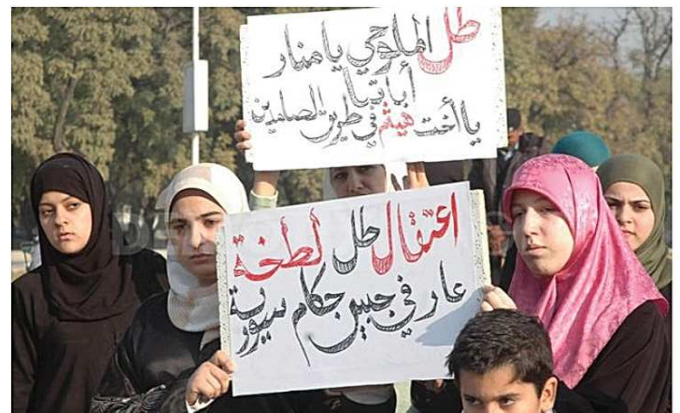 طل الملوحي يا منار
أباتيا
يا أخت هيثم في طريق الصامدين
اعتقال طل لطخة
عار في جبين حكام سورية